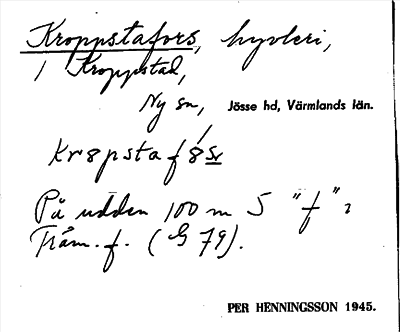 Kroppstafors, hyvleri,
i Kroppstad,
Ny sn, Jösse hd, Värmlands län.
På udden 100 m S "f" i
Främ. f. (G 79).
PER HENNINGSSON 1945.